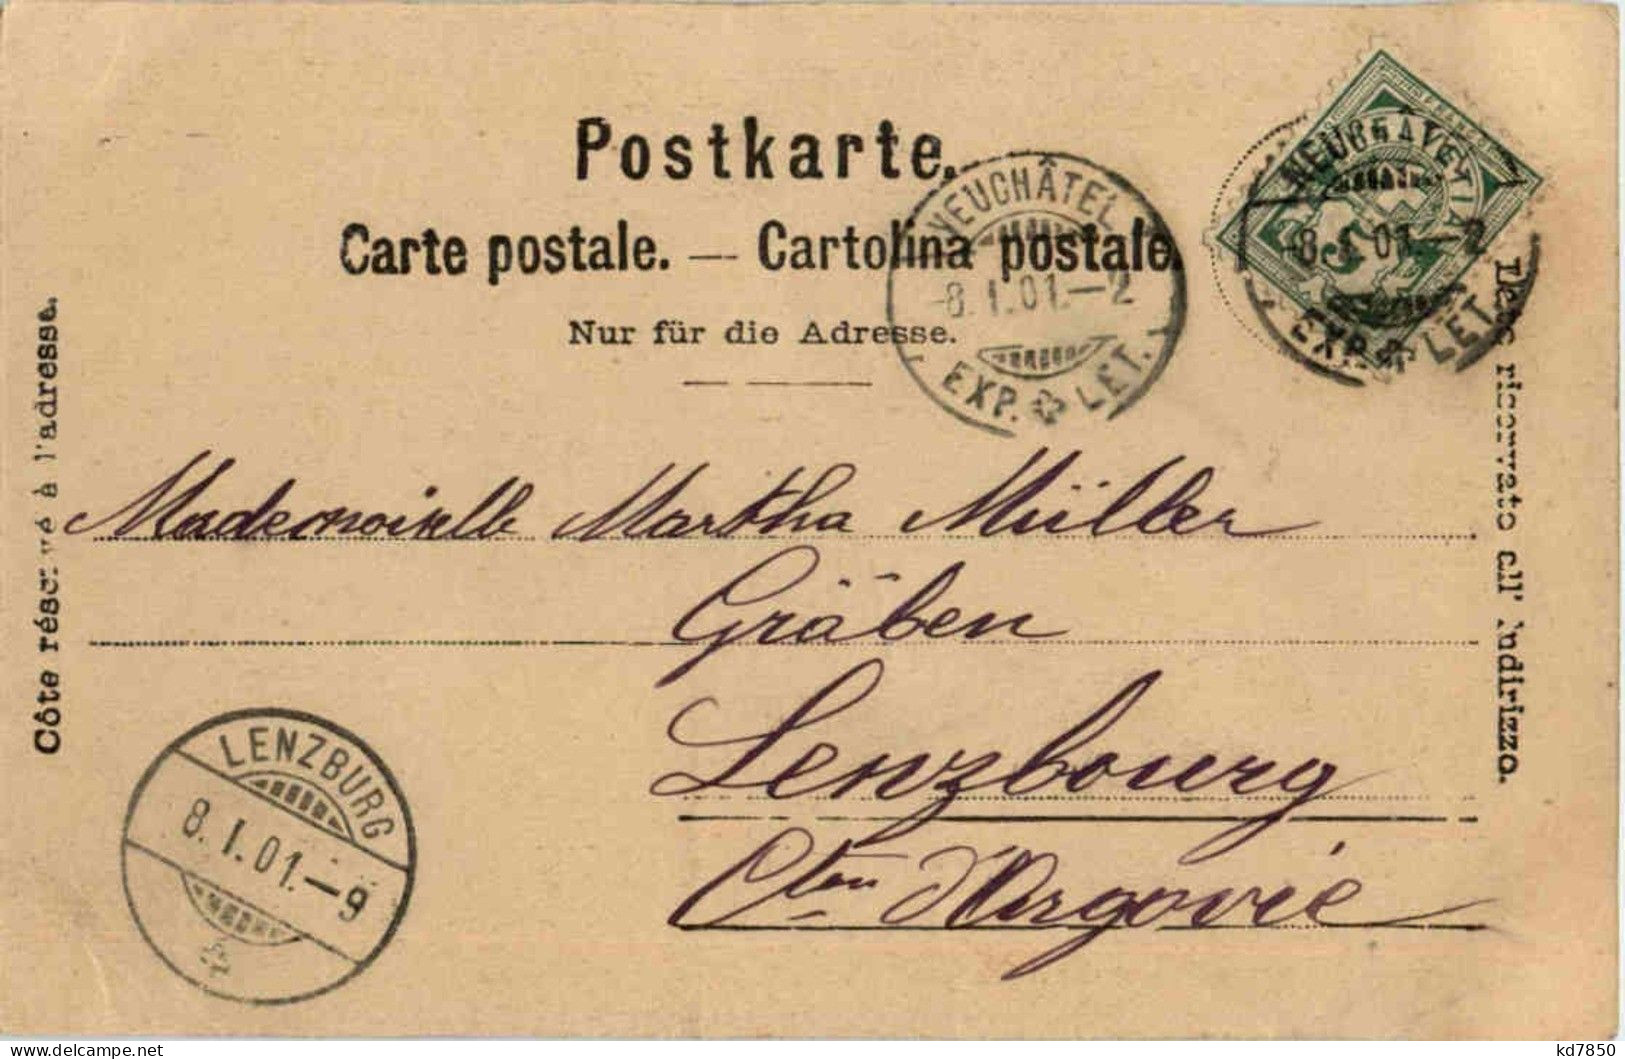 Postkarte.
Carte postale. — Cartolina postale.
Nur für die Adresse.
Côte réservé à l'adresse.
Lato riservato all' indirizzo.
NEUCHÂTEL
-8. I. 01.—2
EXP. LET.
NEUCHÂTEL
-8. I. 01.—2
EXP. LET.
Mademoiselle Martha Müller
Gräben
Lenzbourg
Cton d'Argovie
LENZBURG
8. I. 01.—9
kd7850